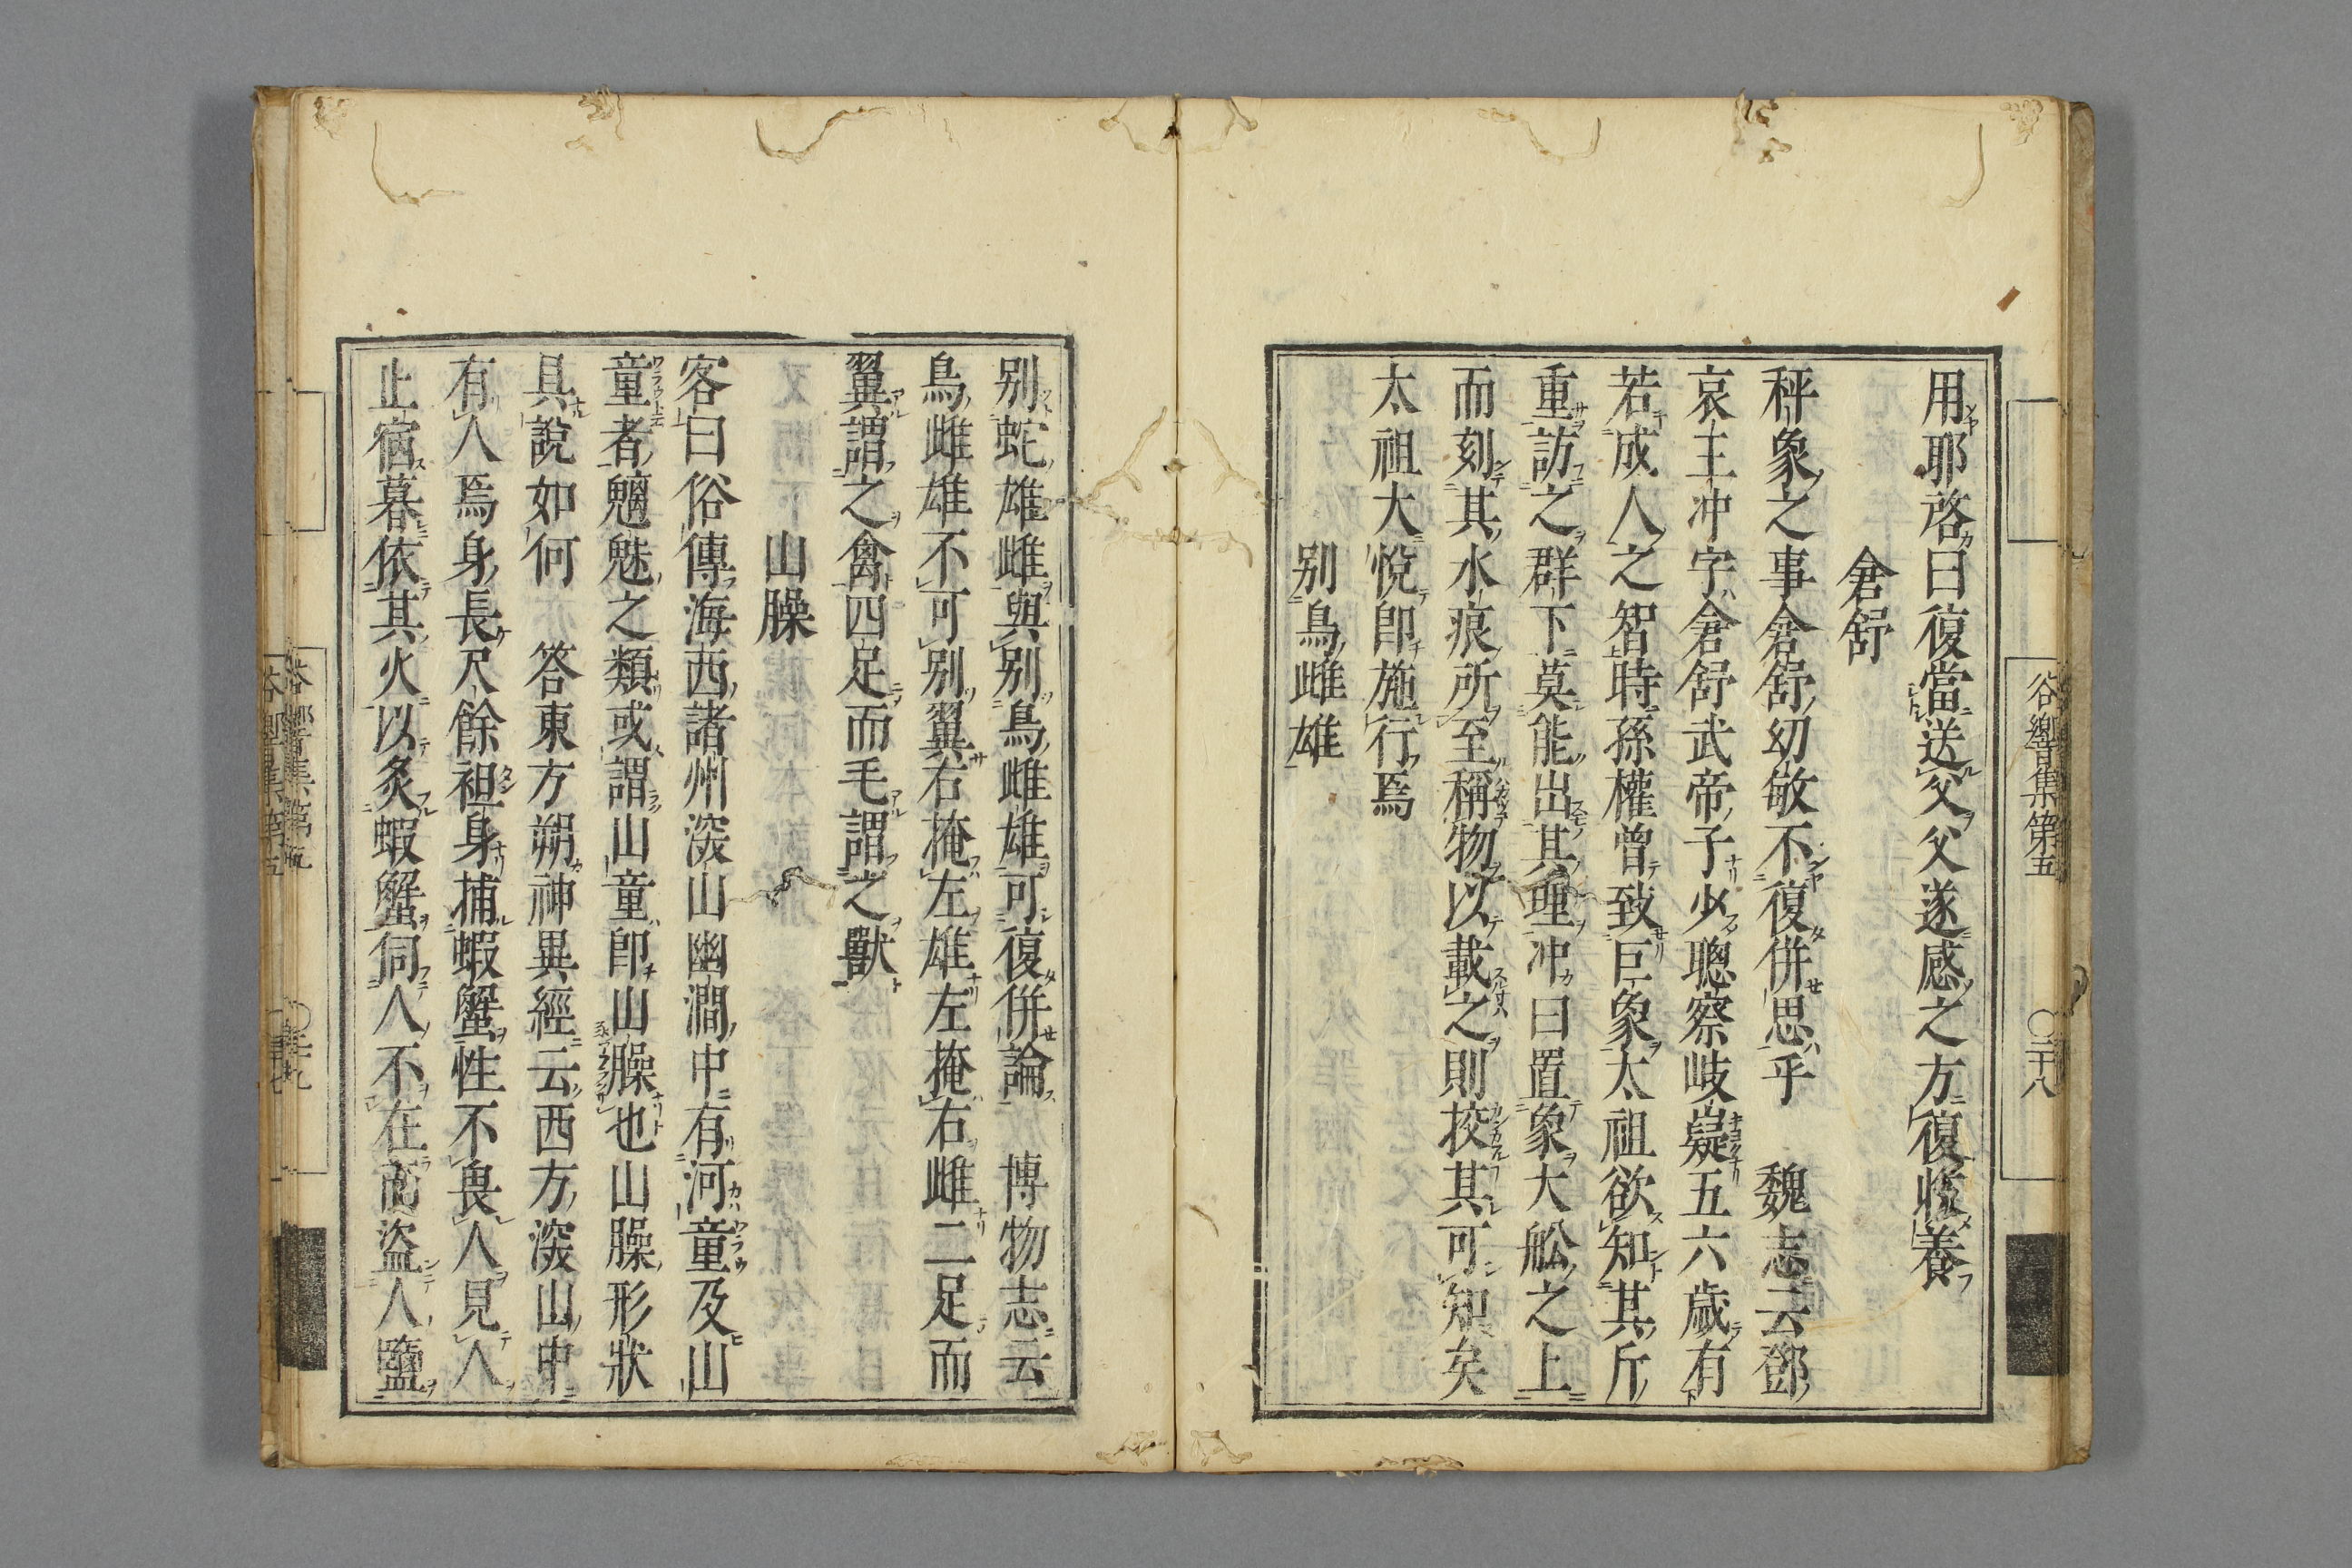 用耶啓曰復當送父父遂感之方復收養
倉舒
秤象之事倉舒幼敏不復併思乎　魏志云鄧
哀王冲字倉舒武帝子少聰察岐嶷五六歲有
若成人之智時孫權曾致巨象太祖欲知其斤
重訪之群下莫能出其理冲曰置象大舩之上
而刻其水痕所至稱物以載之則挍其可知矣
太祖大悅即施行焉
別鳥雌雄
別蛇雄雌與別鳥雌雄可復併論　博物志云
鳥雌雄不可別翼右掩左雄左掩右雌二足而
翼謂之禽四足而毛謂之獸
山臊
客曰俗傳海西諸州深山幽澗中有河童及山
童者魑魅之類或謂山童即山臊也山臊形狀
具說如何　答東方朔神異經云西方深山中
有人焉身長尺餘袒身捕蝦蟹性不畏人見人
止宿暮依其火以炙蝦蟹伺人不在而盜人鹽
谷響集第五　〇二十八